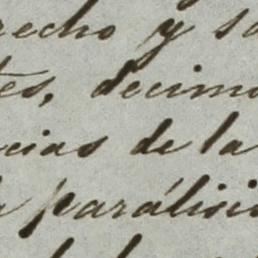 recho y so
tes, decimo
cias de la
parálisi